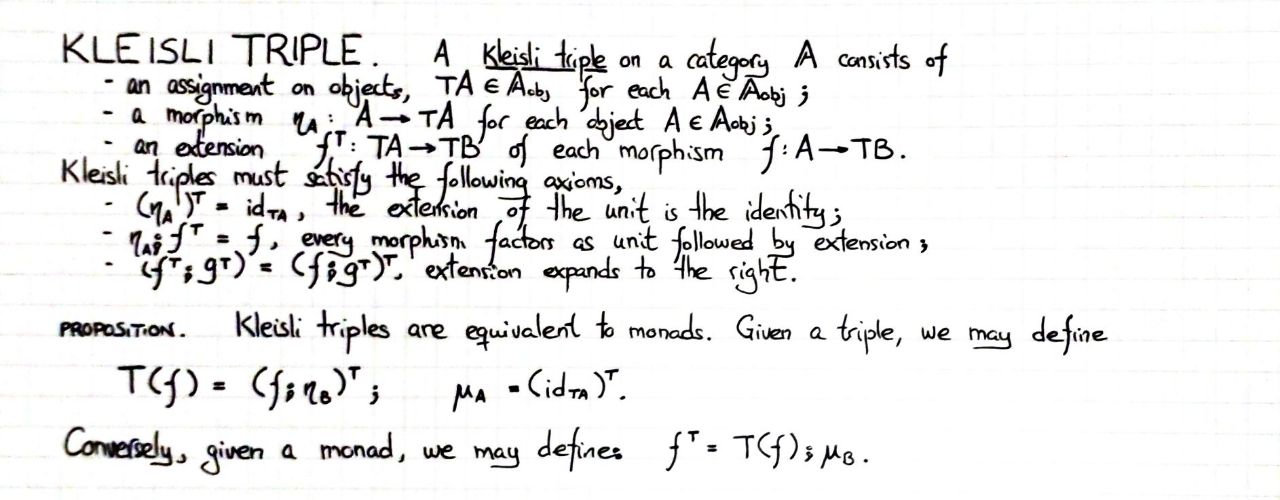 KLEISLI TRIPLE. A Kleisli triple on a category 𝔸 consists of
- an assignment on objects, TA ∈ 𝔸obj for each A ∈ 𝔸obj ;
- a morphism ηA : A → TA for each object A ∈ 𝔸obj ;
- an extension fᵀ : TA → TB of each morphism f : A → TB.
Kleisli triples must satisfy the following axioms,
- (ηA)ᵀ = idTA , the extension of the unit is the identity ;
- ηA ⨟ fᵀ = f , every morphism factors as unit followed by extension ;
- (fᵀ ⨟ gᵀ) = (f ⨟ gᵀ)ᵀ, extension expands to the right.
PROPOSITION. Kleisli triples are equivalent to monads. Given a triple, we may define
T(f) = (f ⨟ ηB)ᵀ ; μA = (idTA)ᵀ.
Conversely, given a monad, we may define: fᵀ = T(f) ⨟ μB.